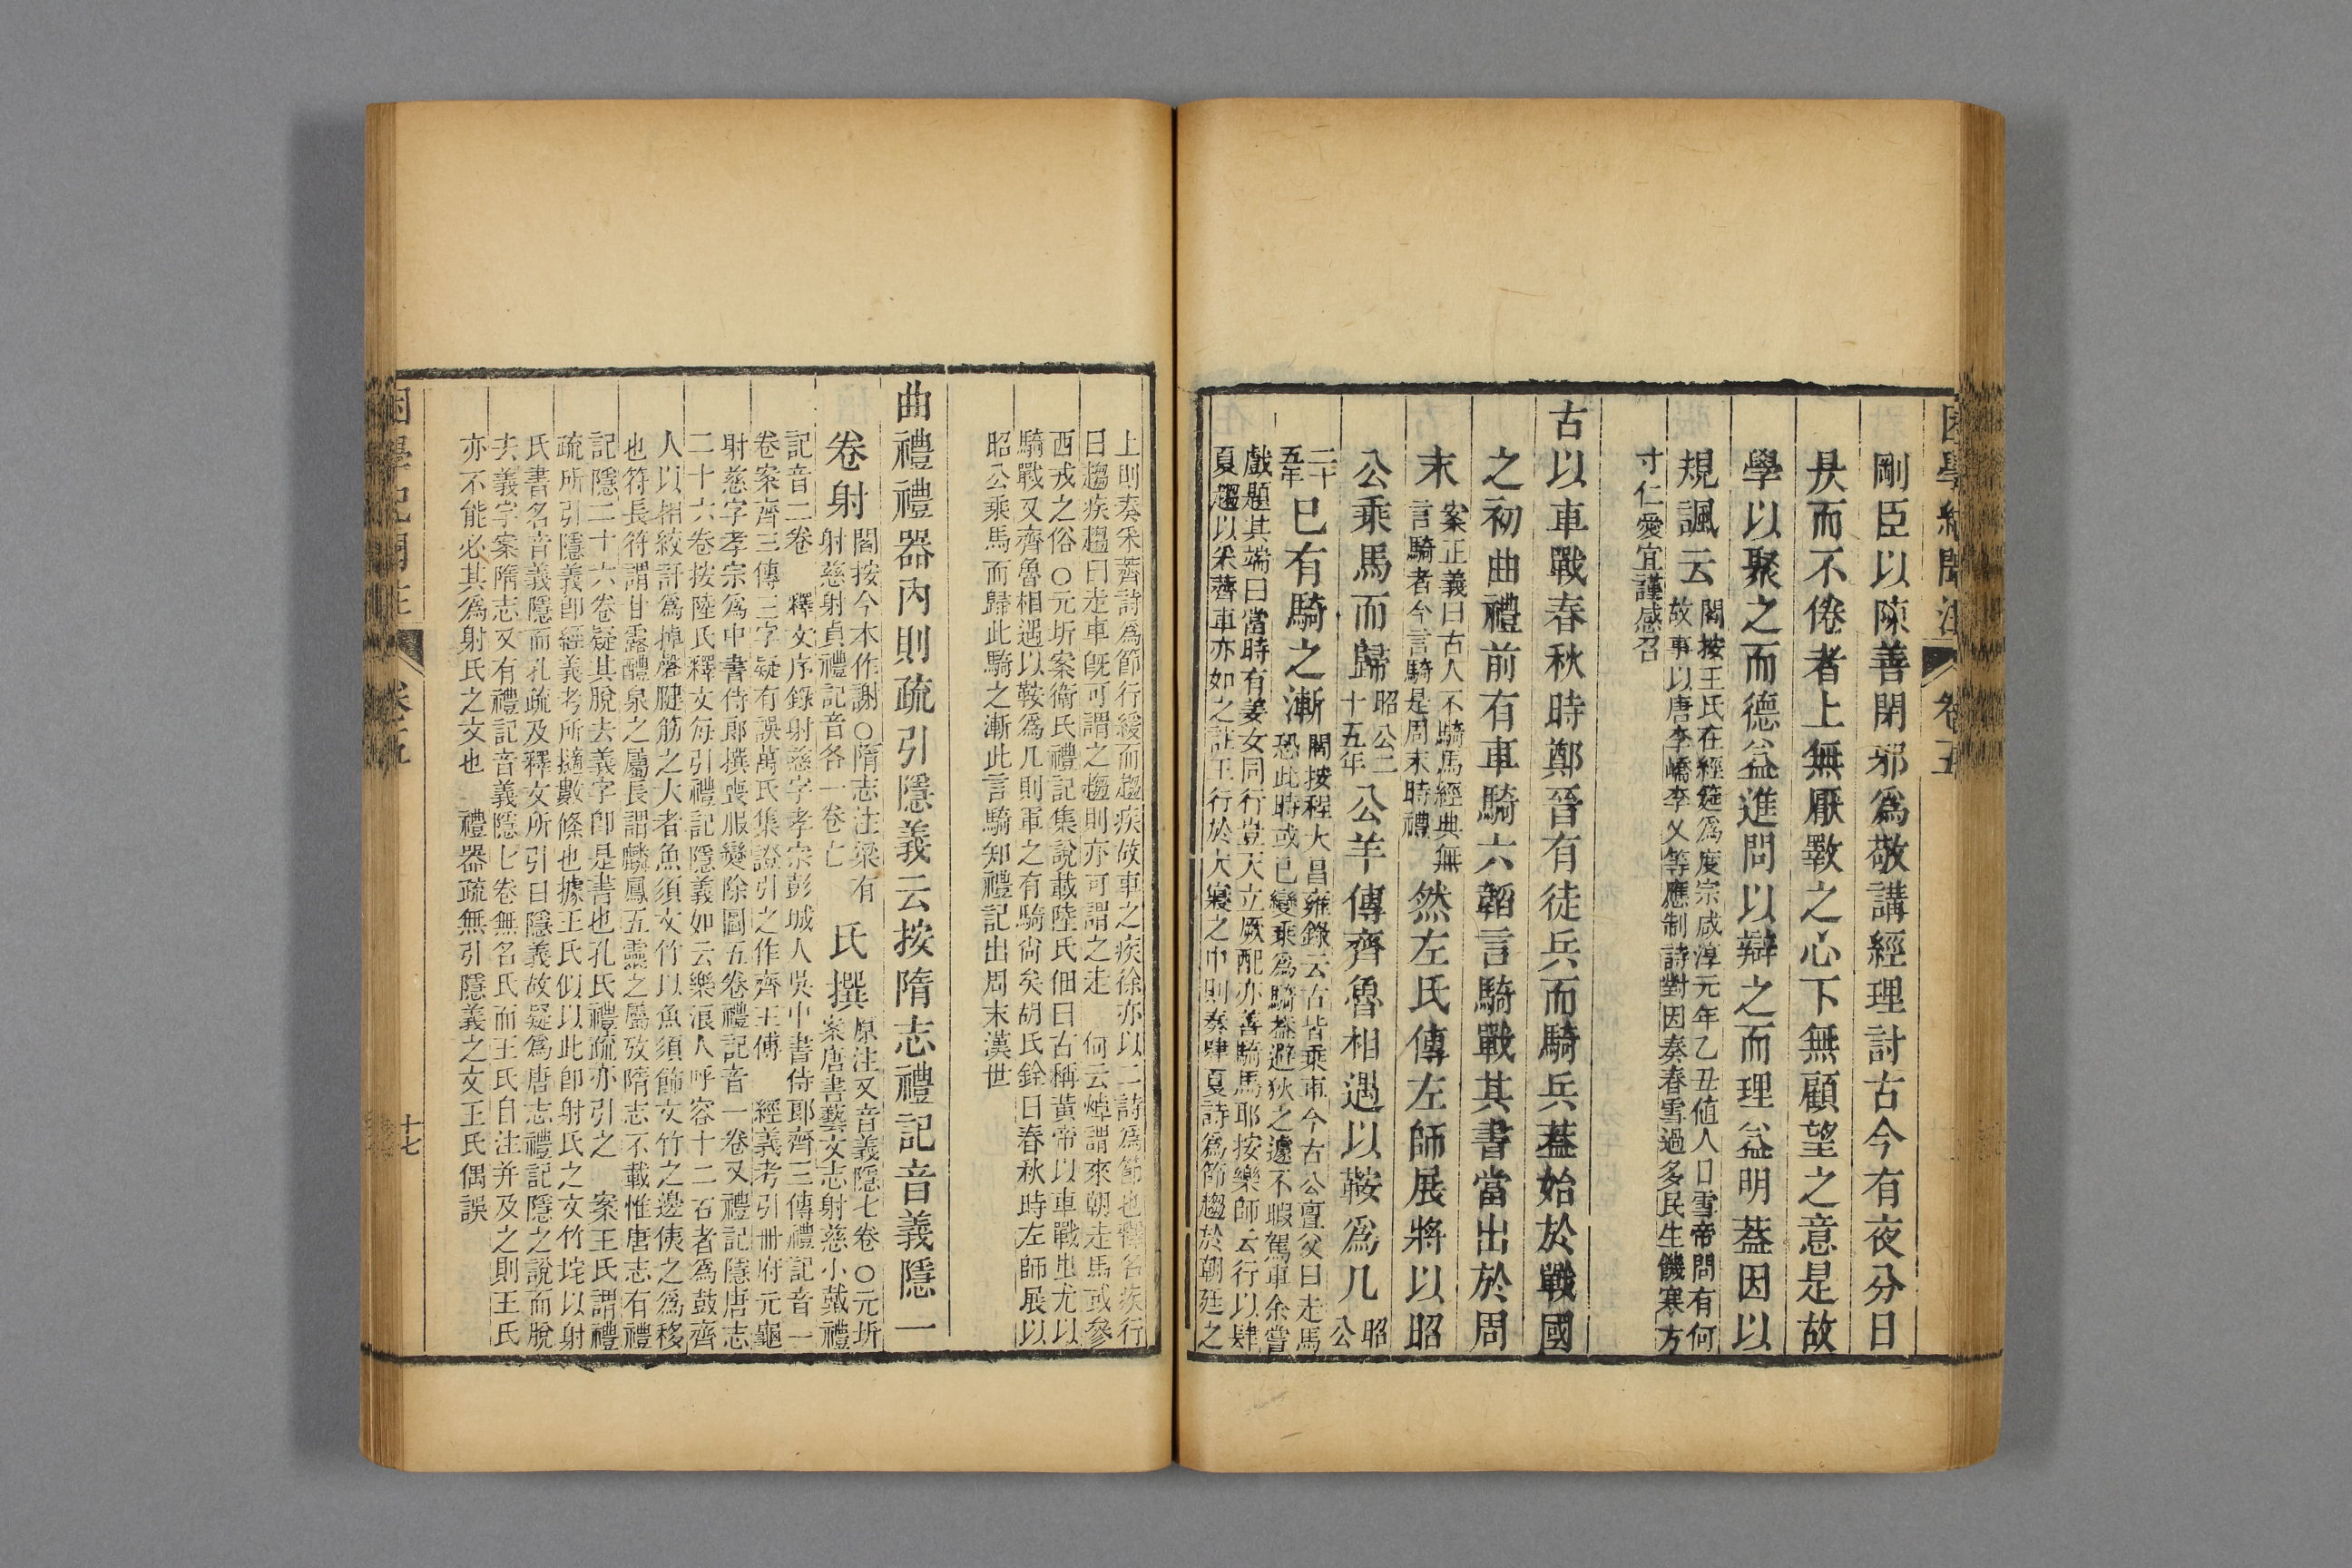 困學紀聞注 卷五
剛臣以陳善閉邪爲敬講經理討古今有夜分日
昃而不倦者上無厭斁之心下無顧望之意是故
學以聚之而德益進問以辯之而理益明蓋因以
規諷云
閻按王氏在經筵爲度宗咸淳元年乙丑值人日雪帝問有何
故事以唐李嶠李乂等應制詩對因奏春雪過多民生饑寒方
寸仁愛宜謹感召
古以車戰春秋時鄭晉有徒兵而騎兵蓋始於戰國
之初曲禮前有車騎六韜言騎戰其書當出於周
末
案正義曰古人不騎馬經典無
言騎者今言騎是周末時禮
然左氏傳左師展將以昭
公乘馬而歸
昭公二
十五年
公羊傳齊魯相遇以鞍爲几
昭
公
二十
五年
已有騎之漸
閻按程大昌雍錄云古皆乘車今古公亶父曰走馬
恐此時或已變乘爲騎蓋避狄之遽不暇駕車余嘗
戲題其端曰當時有姜女同行豈天立厥配亦善騎馬耶按樂師云行以肆
夏趨以采薺車亦如之註王行於大寢之中則奏肆夏詩爲節趨於朝廷之
上則奏采薺詩爲節行緩而趨疾故車之疾徐亦以二詩爲節也釋名疾行
曰趨疾趨曰走車旣可謂之趨則亦可謂之走 何云焯謂來朝走馬或參
西戎之俗○元圻案衛氏禮記集說載陸氏佃曰古稱黃帝以車戰蚩尤以
騎戰又齊魯相遇以鞍爲几則軍之有騎尙矣胡氏銓曰春秋時左師展以
昭公乘馬而歸此騎之漸此言騎知禮記出周末漢世
曲禮禮器內則疏引隱義云按隋志禮記音義隱一
卷射
閻按今本作謝○隋志注梁有
射慈射貞禮記音各一卷亡
氏撰
原注又音義隱七卷○元圻
案唐書藝文志射慈小戴禮
記音二卷 釋文序錄射慈字孝宗彭城人吳中書侍郎齊三傳禮記音一
卷案齊三傳三字疑有誤萬氏集證引之作齊王傅 經義考引冊府元龜
射慈字孝宗爲中書侍郎撰喪服變除圖五卷禮記音一卷又禮記隱唐志
二十六卷按陸氏釋文每引禮記隱義如云樂浪人呼容十二石者爲鼓齊
人以相絞訐爲掉磬腱筋之大者魚須文竹以魚須飾文竹之邊侇之爲移
也符長符謂甘露醴泉之屬長謂麟鳳五靈之屬攷隋志不載惟唐志有禮
記隱二十六卷疑其脫去義字卽是書也孔氏禮疏亦引之 案王氏謂禮
疏所引隱義卽經義考所擿數條也據王氏似以此卽射氏之文竹垞以射
氏書名音義隱而孔疏及釋文所引曰隱義故疑爲唐志禮記隱之說而脫
去義字案隋志又有禮記音義隱七卷無名氏而王氏自注并及之則王氏
亦不能必其爲射氏之文也 禮器疏無引隱義之文王氏偶誤
困學紀聞注 卷五 十七